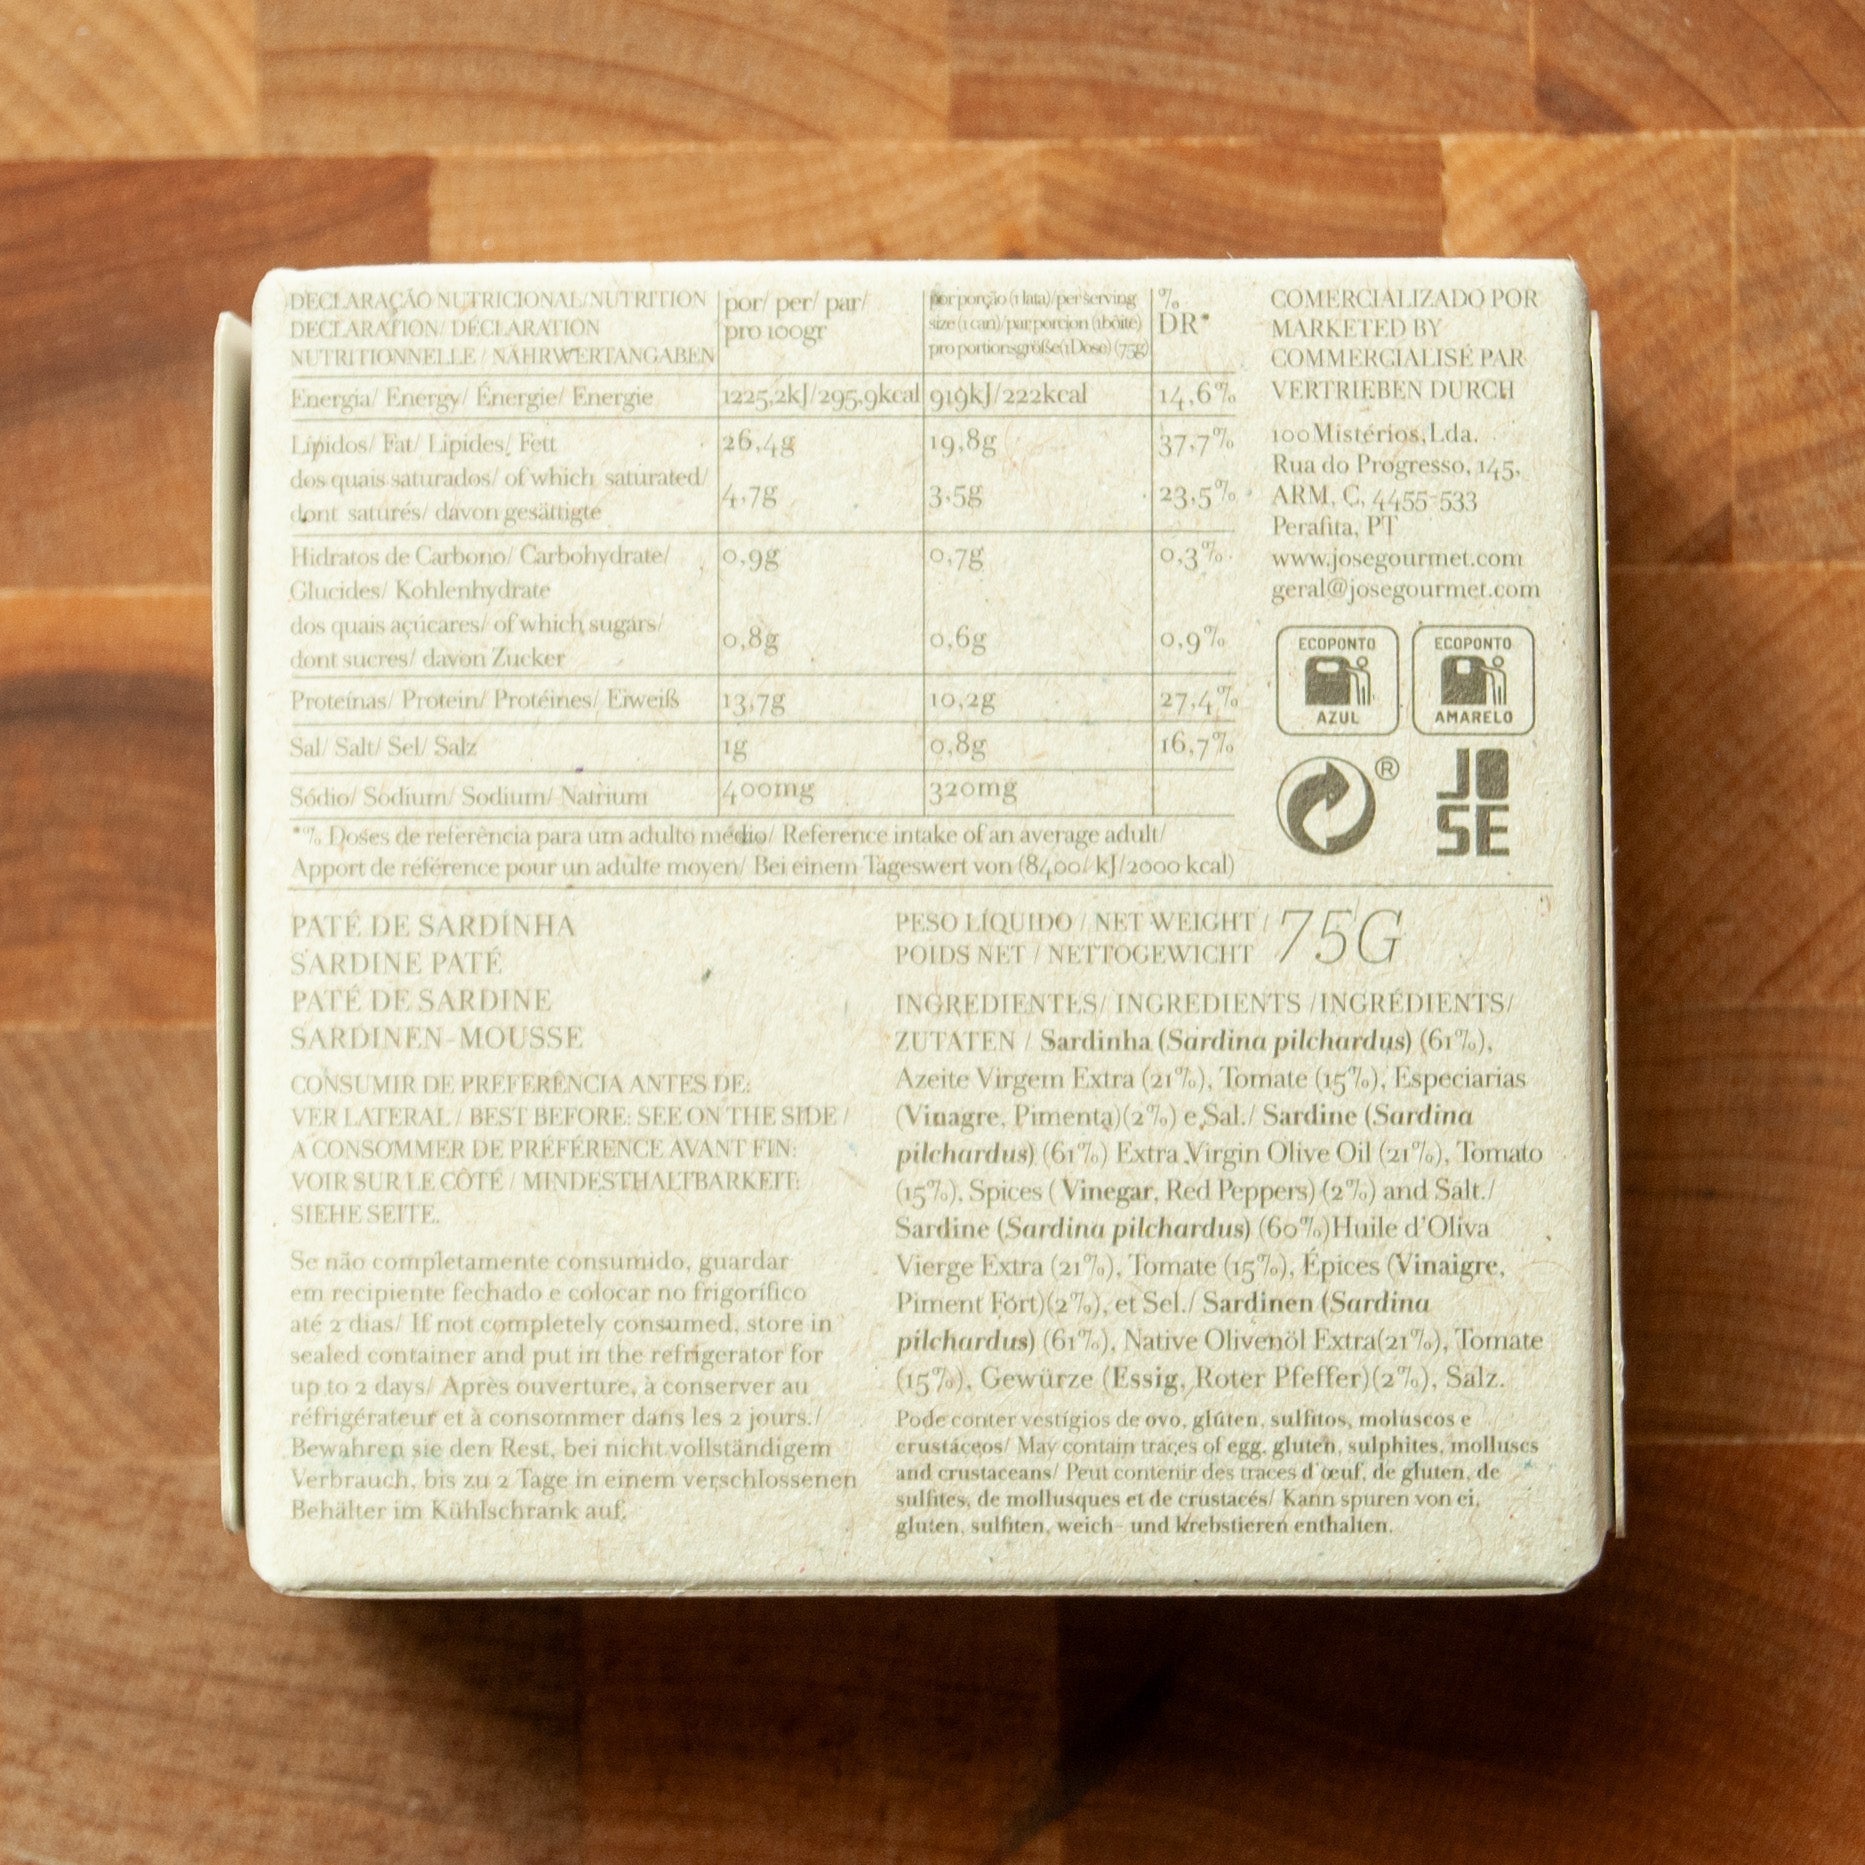 DECLARAÇÃO NUTRICIONAL/NUTRITION
DECLARATION/ DÉCLARATION
NUTRITIONNELLE / NÄHRWERTANGABEN
por/ per/ par/
pro 100gr
por porção (1 lata)/per serving
size (1 can)/par portion (1 boîte)
pro portionsgröße(1 Dose) (75g)
%
DR*
Energia/ Energy/ Énergie/ Energie 1225,2kJ/295,9kcal 919kJ/222kcal 14,6%
Lípidos/ Fat/ Lipides/ Fett 26,4g 19,8g 37,7%
dos quais saturados/ of which saturated/
dont saturés/ davon gesättigte 4,7g 3,5g 23,5%
Hidratos de Carbono/ Carbohydrate/ 0,9g 0,7g 0,3%
Glucides/ Kohlenhydrate
dos quais açúcares/ of which sugars/
dont sucres/ davon Zucker 0,8g 0,6g 0,9%
Proteínas/ Protein/ Protéines/ Eiweiß 13,7g 10,2g 27,4%
Sal/ Salt/ Sel/ Salz 1g 0,8g 16,7%
Sódio/ Sodium/ Sodium/ Natrium 400mg 320mg
*% Doses de referência para um adulto médio/ Reference intake of an average adult/
Apport de référence pour un adulte moyen/ Bei einem Tageswert von (8400/ kJ/2000 kcal)
COMERCIALIZADO POR
MARKETED BY
COMMERCIALISÉ PAR
VERTRIEBEN DURCH
100Mistérios,Lda.
Rua do Progresso, 145,
ARM, C, 4455-533
Perafita, PT
www.josegourmet.com
geral@josegourmet.com
ECOPONTO
AZUL
ECOPONTO
AMARELO
®
JO
SE
PATÉ DE SARDINHA
SARDINE PATÉ
PATÉ DE SARDINE
SARDINEN-MOUSSE
CONSUMIR DE PREFERÊNCIA ANTES DE:
VER LATERAL / BEST BEFORE: SEE ON THE SIDE /
A CONSOMMER DE PRÉFÉRENCE AVANT FIN:
VOIR SUR LE CÔTÉ / MINDESTHALTBARKEIT:
SIEHE SEITE.
Se não completamente consumido, guardar
em recipiente fechado e colocar no frigorífico
até 2 dias/ If not completely consumed, store in
sealed container and put in the refrigerator for
up to 2 days/ Après ouverture, à conserver au
réfrigérateur et à consommer dans les 2 jours./
Bewahren sie den Rest, bei nicht vollständigem
Verbrauch, bis zu 2 Tage in einem verschlossenen
Behälter im Kühlschrank auf.
PESO LÍQUIDO / NET WEIGHT /
POIDS NET / NETTOGEWICHT 75G
INGREDIENTES/ INGREDIENTS /INGRÉDIENTS/
ZUTATEN / Sardinha (Sardina pilchardus) (61%),
Azeite Virgem Extra (21%), Tomate (15%), Especiarias
(Vinagre, Pimenta)(2%) e Sal./ Sardine (Sardina
pilchardus) (61%) Extra Virgin Olive Oil (21%), Tomato
(15%), Spices ( Vinegar, Red Peppers) (2%) and Salt./
Sardine (Sardina pilchardus) (60%)Huile d'Oliva
Vierge Extra (21%), Tomate (15%), Épices (Vinaigre,
Piment Fort)(2%), et Sel./ Sardinen (Sardina
pilchardus) (61%), Native Olivenöl Extra(21%), Tomate
(15%), Gewürze (Essig, Roter Pfeffer)(2%), Salz.
Pode conter vestígios de ovo, glúten, sulfitos, moluscos e
crustáceos/ May contain traces of egg, gluten, sulphites, molluscs
and crustaceans/ Peut contenir des traces d'œuf, de gluten, de
sulfites, de mollusques et de crustacés/ Kann spuren von ei,
gluten, sulfiten, weich- und krebstieren enthalten.